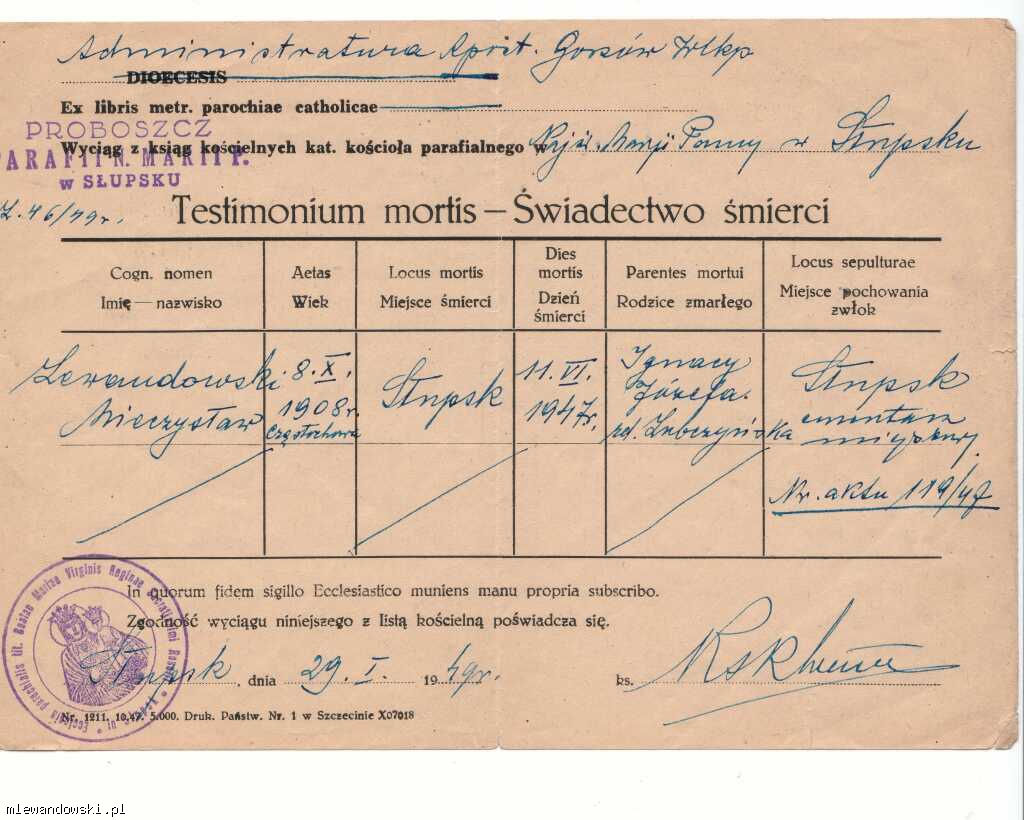 Administratura Apost. Gorzów Wlkp
DIOECESIS
Ex libris metr. parochiae catholicae
PROBOSZCZ
Wyciąg z ksiąg kościelnych kat. kościoła parafialnego w Maryi Panny w Słupsku
PARAFII N. MARII P.
w SŁUPSKU
L. 46/49r.
Testimonium mortis — Świadectwo śmierci
Cogn. nomen
Imię — nazwisko
Aetas
Wiek
Locus mortis
Miejsce śmierci
Dies
mortis
Dzień
śmierci
Parentes mortui
Rodzice zmarłego
Locus sepulturae
Miejsce pochowania
zwłok
Lewandowski
Mieczysław
8. X.
1908 r.
Częstochowa
Słupsk
11. VI.
1947r.
Ignacy
Józefa
zd. Lubczyńska
Słupsk
cmentarz
Nr. aktu 119/47
In quorum fidem sigillo Ecclesiastico muniens manu propria subscribo.
Zgodność wyciągu niniejszego z listą kościelną poświadcza się.
Słupsk, dnia 29. I. 1949r. ks.
Ecclesia parochialis tit. Beatae Mariae Virginis Reginae
Nr. 1211. 10.47. 5.000. Druk. Państw. Nr. 1 w Szczecinie X07018
mlewandowski.pl